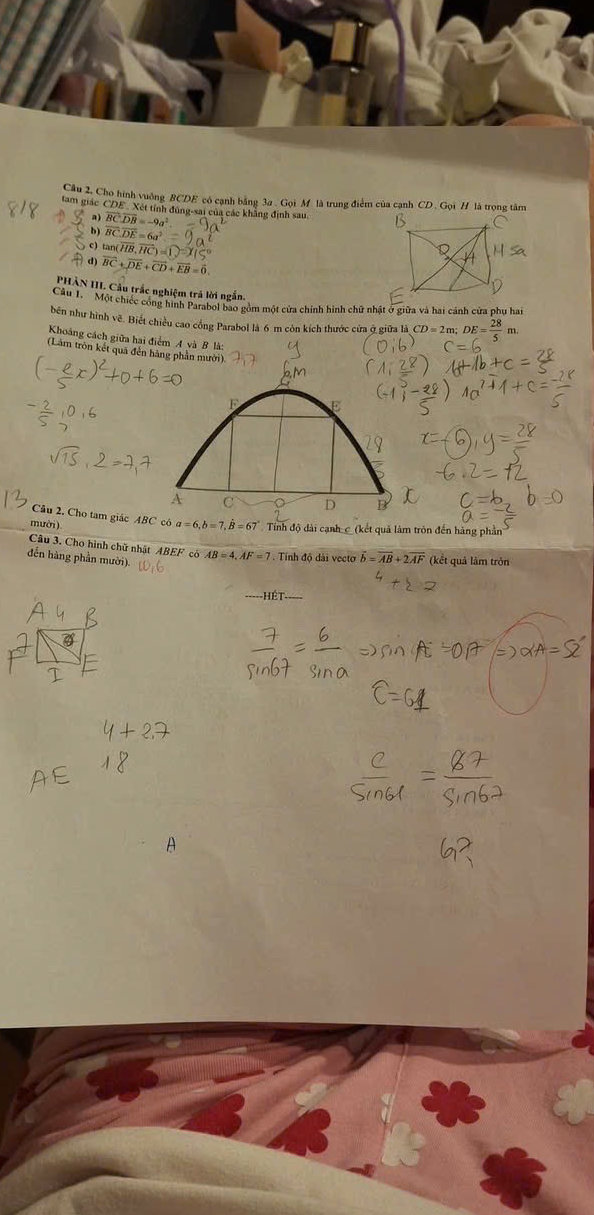 Câu 2. Cho hình vuông BCDE có cạnh bằng 3a. Gọi M là trung điểm của cạnh CD. Gọi H là trọng tâm
tam giác CDE. Xét tính đúng-sai của các khẳng định sau.
8/8
a) BC.DB = -9a². = 9a²
b) BC.DE = 6a². = 9a²
c) tan(HB, HC) =
d) BC + DE + CD + EB = 0.
B C
H
E D
PHẦN III. Câu trắc nghiệm trả lời ngắn.
Câu 1. Một chiếc cổng hình Parabol bao gồm một cửa chính hình chữ nhật ở giữa và hai cánh cửa phụ hai
bên như hình vẽ. Biết chiều cao cổng Parabol là 6 m còn kích thước cửa ở giữa là CD = 2m; DE = 28/5 m.
Khoảng cách giữa hai điểm A và B là:
(Làm tròn kết quả đến hàng phần mười). 7,7
y (0;6) c=6
(1; 28/5) 1a+1b+c = 28/5
(-1; -28/5) 1a²+1+c = -28/5
(-2/5 x)²+0+6=0
6m
-2/5, 0, 6
F E
√15 . 2 = 7,7
x=-6, y=28/5
-6.2=12
A C O D B x
c=6, b=0
a=-2/5
13
Câu 2. Cho tam giác ABC có a = 6, b = 7, B̂ = 67°. Tính độ dài cạnh c (kết quả làm tròn đến hàng phần
mười).
Câu 3. Cho hình chữ nhật ABEF có AB = 4, AF = 7. Tính độ dài vectơ b = AB + 2AF (kết quả làm tròn
đến hàng phần mười). 10,6
-----HẾT-----
A 4 B
7
F I E
7/sin67 = 6/sina
Ĉ=61
4+2.7
18
AE
c/sin61 = 67/sin67
A